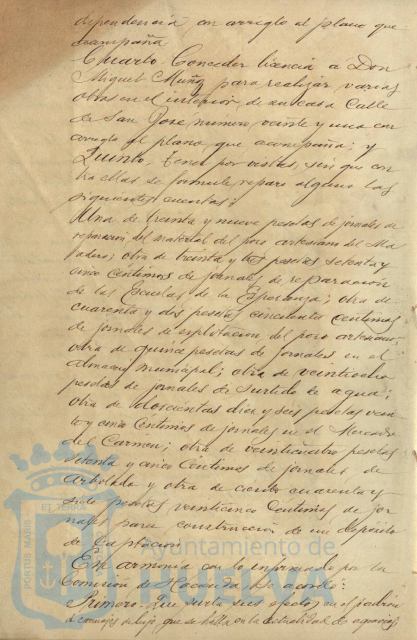 dependencia con arreglo al plano que
acompaña
Cuarto Conceder licencia a Don
Miguel Muñoz para realizar varias
obras en el interior de su casa Calle
de San Jose, numero veinte y uno con
arreglo al plano, que acompaña; y
Quinto. Tener por vistas, sin que con
tra ellas se formule reparo alguno las
siguientes cuentas:
Una de treinta y nueve pesetas de jornales de
reparacion del material del pozo artesiano del Ma
tadero; otra de treinta y tres pesetas setenta y
cinco centimos de jornales de reparacion
de las Escuelas de la Esperanza; otra de
cuarenta y dos pesetas cincuenta centimos
de jornales de explotacion del pozo artesiano
otra de quince pesetas de jornales en el
almacen municipal; otra de veinticinco
pesetas de jornales de surtido de agua;
otra de doscientas diez y seis pesetas vein
te y cinco centimos de jornales en el Mercado
del Carmen; otra de veinticuatro pesetas
setenta y cinco centimos de jornales de
arbolado y otra de ciento cuarenta y
siete pesetas veinticinco centimos de jor
nales para construccion de un deposito
de captacion.
En armonia con lo informado por la
Comision de Hacienda se acordó:
Primero. Que surta sus efectos en el padron
de carruajes de lujo, que se halla en la actualidad de
PORTUS MARIS ET TERRÆ
Ayuntamiento de
HUELVA